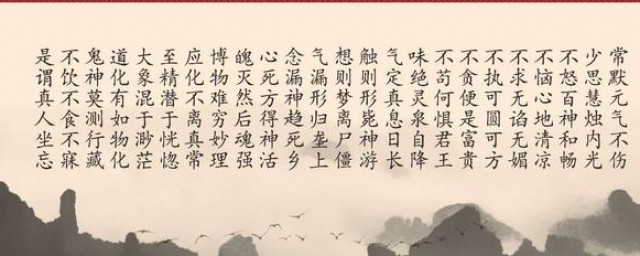 常默元气不伤
少思慧烛内光
不怒百神和畅
不恼心地清凉
不求无谄无媚
不执可圆可方
不贪便是富贵
不苟何惧君王
味绝灵泉自降
气定真息日长
触则形毙神游
想则梦离尸僵
气漏形归垄上
念漏神趋死乡
心死方得神活
魄灭然后魂强
博物难穷妙理
应化不离真常
至精潜于恍惚
大象混于渺茫
道化有如物化
鬼神莫测行藏
不饮不食不寐
是谓真人坐忘